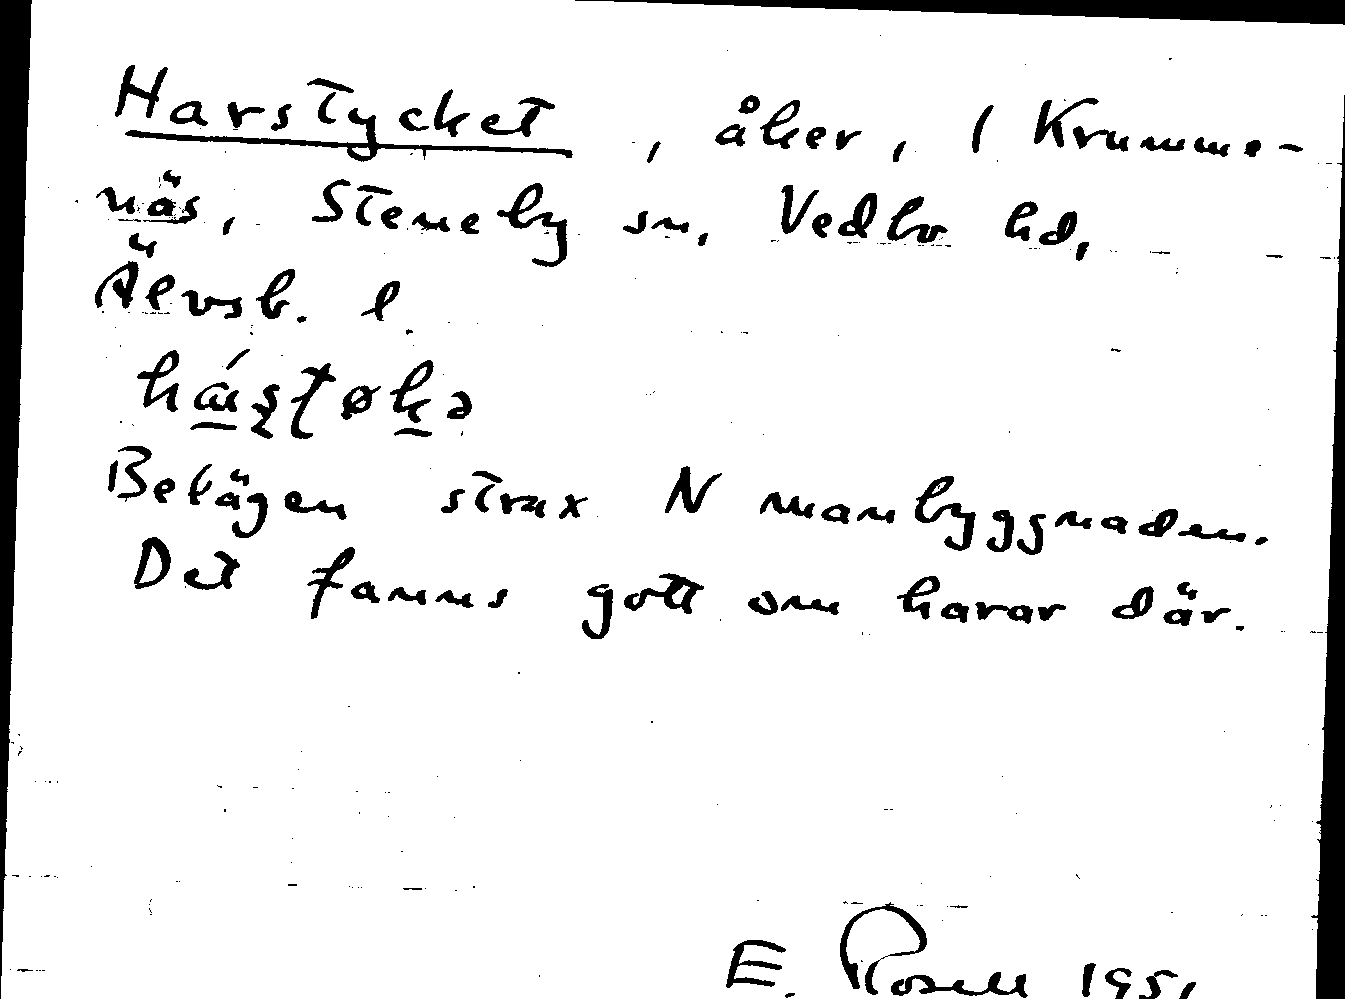 Harstycket, åker, 1 Krumme-
näs, Steneby sn, Vedbo hd,
Älvsb. l.
Belägen strax N manbyggnaden.
Det fanns gott om harar där.
E. Rosell 1951